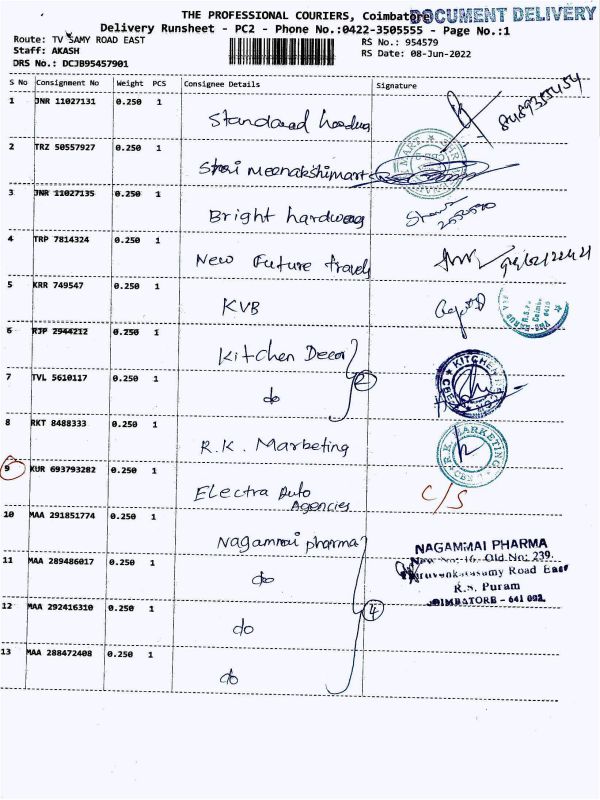 THE PROFESSIONAL COURIERS, Coimbatore
DOCUMENT DELIVERY
Delivery Runsheet - PC2 - Phone No.:0422-3505555 - Page No.:1
Route: TV SAMY ROAD EAST
RS No.: 954579
Staff: AKASH
RS Date: 08-Jun-2022
DRS No.: DCJB95457901
S No Consignment No Weight PCS Consignee Details Signature
1 JNR 11027131 0.250 1 Standard
2 TRZ 50557927 0.250 1 Shri Meenakshimart
3 JNR 11027135 0.250 1 Bright hardwares
4 TRP 7814324 0.250 1 New Future travels
5 KRR 749547 0.250 1 KVB
6 RJP 2944212 0.250 1 Kitchen Decor
7 TVL 5610117 0.250 1 do 2
KITCHEN DECOR
8 RKT 8488333 0.250 1 R.K. Marketing
R.K. MARKETING
9 KUR 693793282 0.250 1 Electra Auto Agencies C/S
10 MAA 291851774 0.250 1 Nagammai pharma
11 MAA 289486017 0.250 1 do
12 MAA 292416310 0.250 1 do 4
13 MAA 288472408 0.250 1 do
NAGAMMAI PHARMA
New No: 16, Old No: 239,
Thiruvenkatasamy Road East
R.S. Puram
COIMBATORE - 641 002.